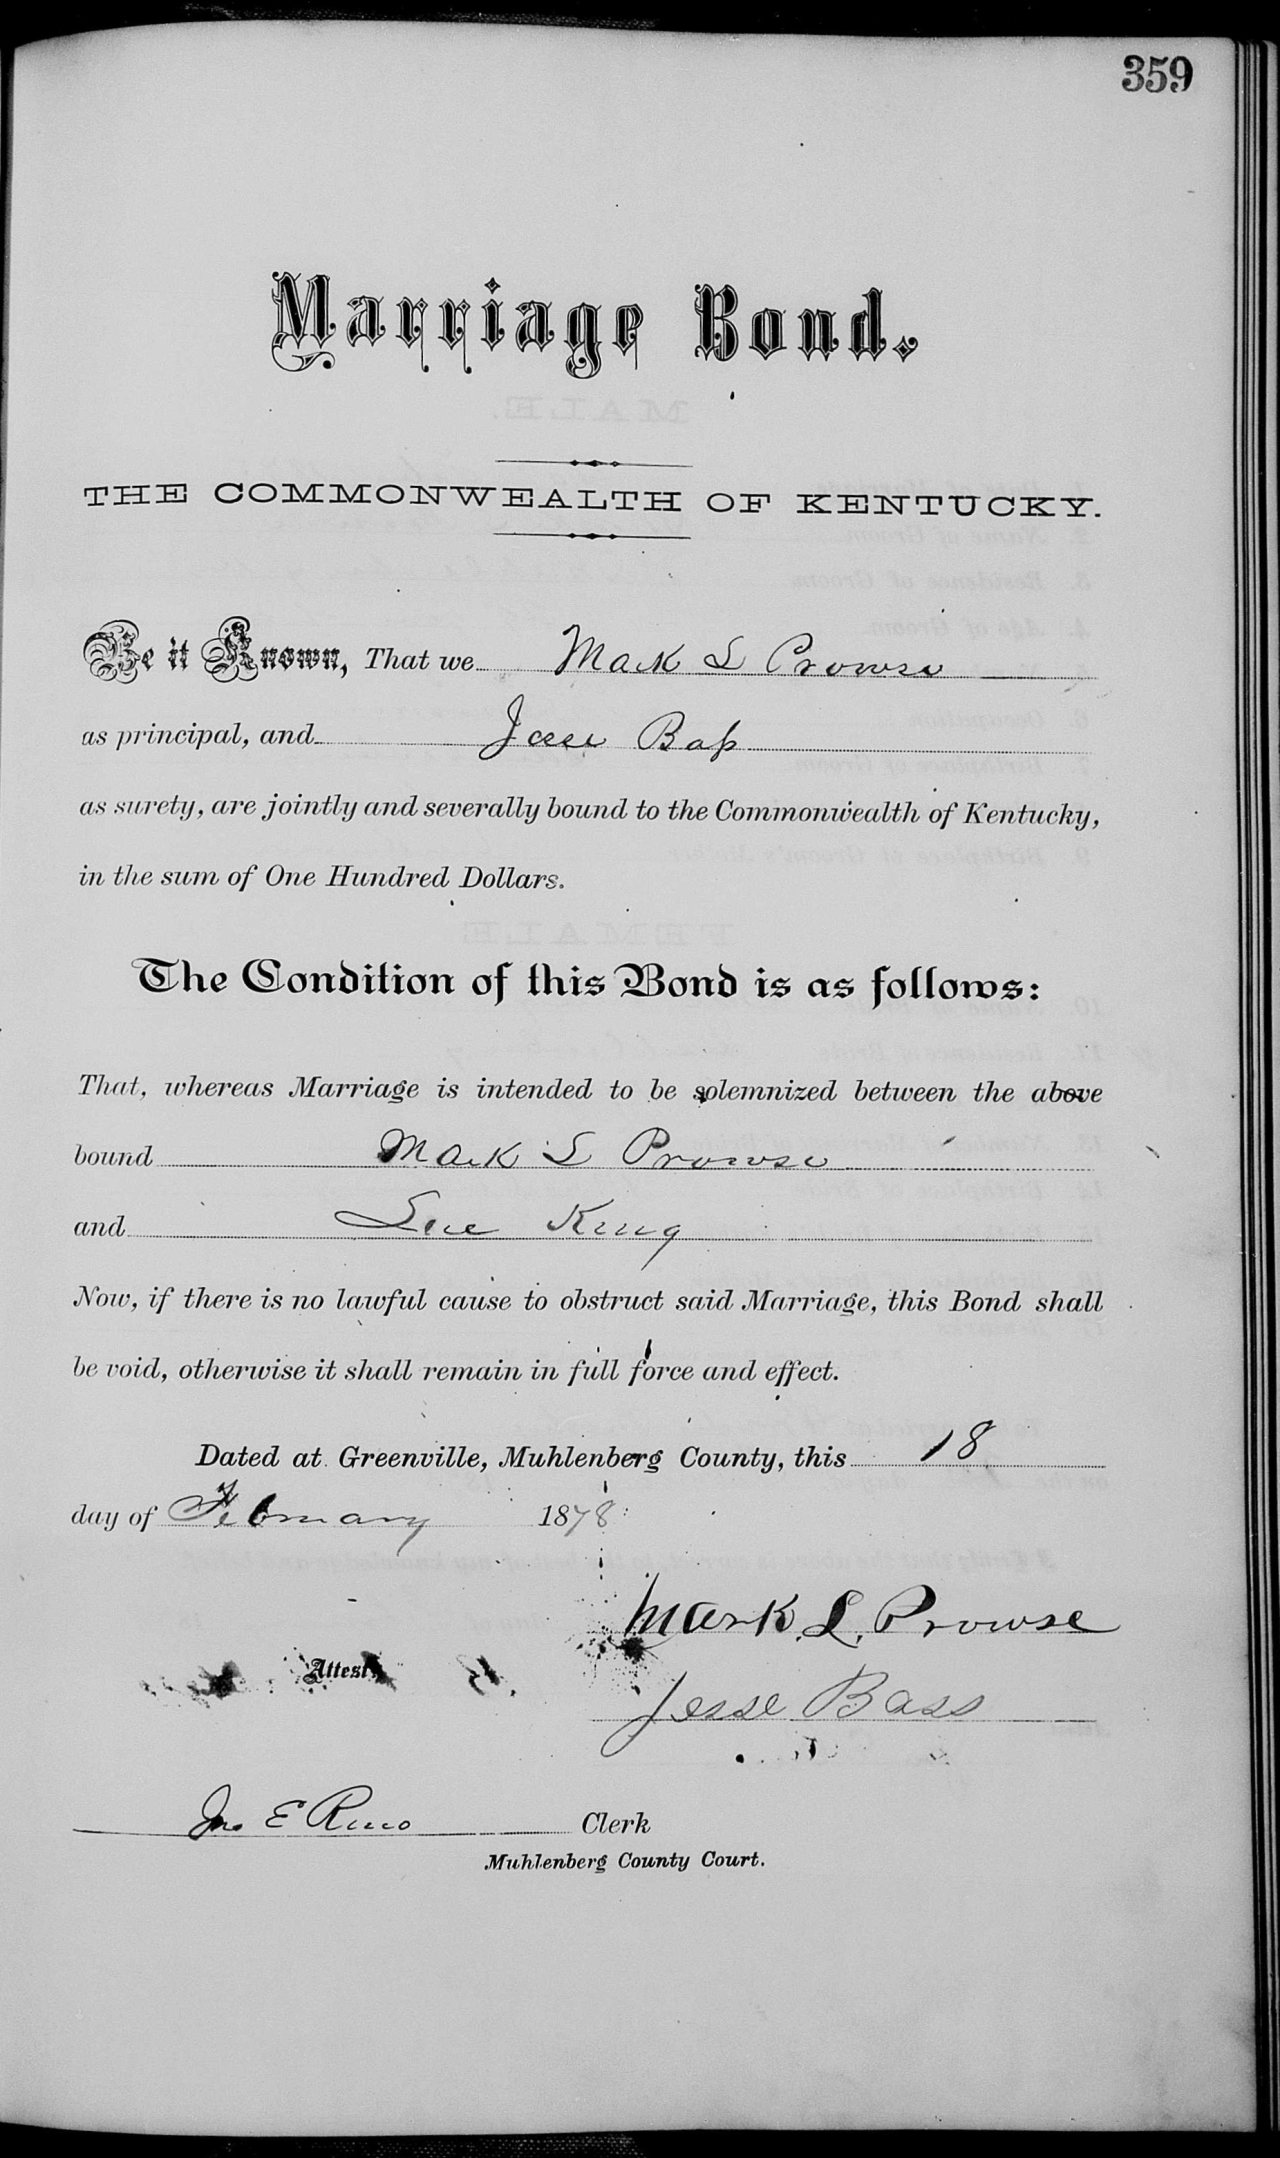 359
Marriage Bond.
THE COMMONWEALTH OF KENTUCKY.
Be it Known, That we Mark L Prowse
as principal, and Jesse Bass
as surety, are jointly and severally bound to the Commonwealth of Kentucky,
in the sum of One Hundred Dollars.
The Condition of this Bond is as follows:
That, whereas Marriage is intended to be solemnized between the above
bound Mark L Prowse
and Sue King
Now, if there is no lawful cause to obstruct said Marriage, this Bond shall
be void, otherwise it shall remain in full force and effect.
Dated at Greenville, Muhlenberg County, this 18
day of February 1878
Mark. L. Prowse
Attest,
Jesse Bass
Jno E Reno Clerk
Muhlenberg County Court.